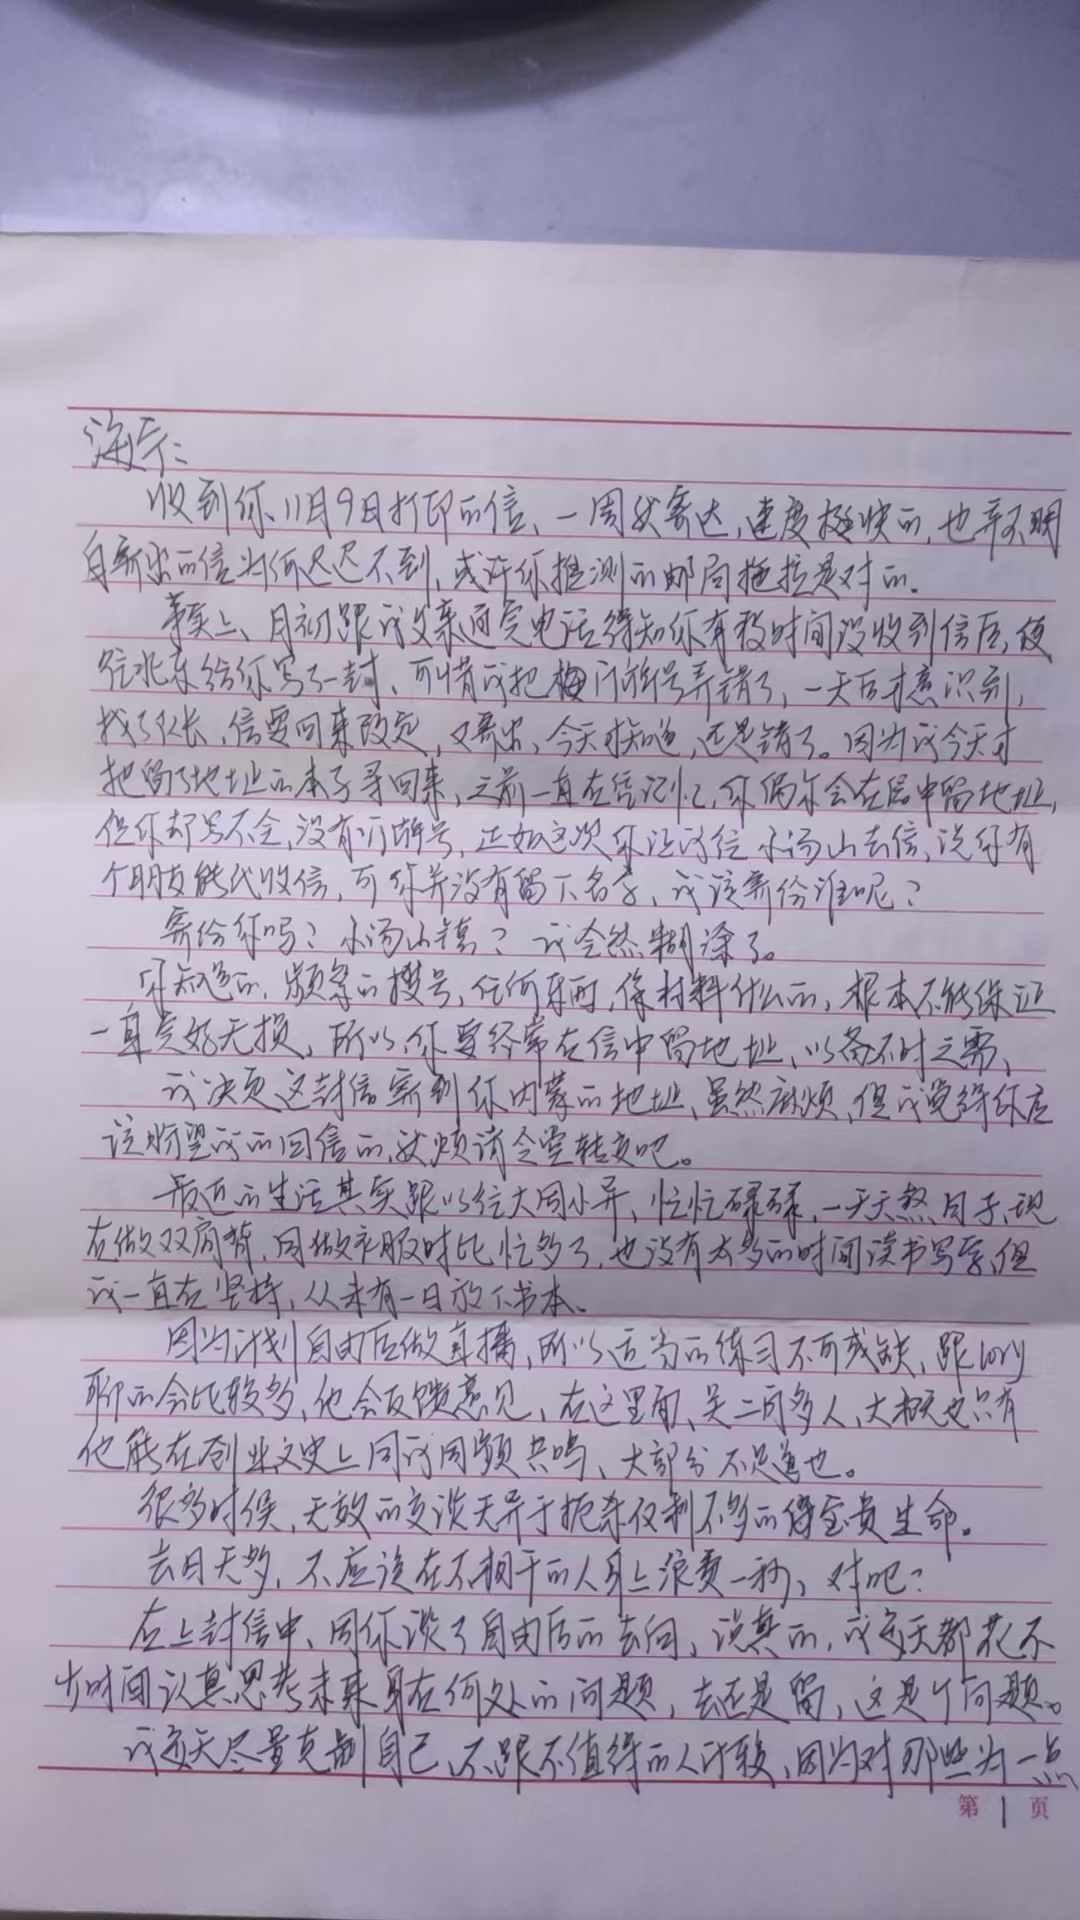 海宁:
收到你11月9日打印的信、一周状寄达,速度挺快的,也弄不明
白寄出的信为何迟迟不到,或许你推测的邮局拖拉是对的。
事实上、月初跟我父亲通完电话得知你有段时间没收到信后,便
往北京给你写了一封、可惜我把门牌号弄错了,一天后才意识到,
找了队长,信要回来改完,又寄出,今天才知道,还是错了。因为我今天才
把留了地址的本子寻回来,之前一直在凭记忆,你偶尔会在信中留地址,
但你却写不全,没有门牌号,正如这次你让我往小汤山去信,说你有
个朋友能代收信,可你并没有留下名字,我该寄给谁呢?
寄给你吗?小汤山镇?我全然糊涂了。
你知道的,频繁的搜号,任何东西,像材料什么的,根本不能保证
一直完好无损,所以,你要经常在信中留地址、以备不时之需、
我决定这封信寄到你内蒙的地址、虽然麻烦,但我觉得你应
该盼望我的回信的,就烦请令堂转交吧。
最近的生活其实跟以往大同小异、忙忙碌碌,一天天熬日子,现
在做双肩背,同做衣服时比,忙多了,也没有太多的时间读书写字,但
我一直在坚持,从未有一日放下书本、
因为计划自由后做直播,所以适当的练习不可或缺,跟
聊的会比较多,他会反馈意见、在这里面、吴二的多人、大概也只有
他能在创业文史上同我同频共鸣、大部分不足道也。
很多时候,无效的交谈无异于扼杀仅剩不多的宝贵生命。
去日无多,不应该在不相干的人身上浪费一秒、对吧?
在上封信中、同你谈了自由后的去向、说真的,我每天都花不
少时间认真思考未来身在何处的问题,去还是留,这是个问题。
我每天尽量克制自己,不跟不值得的人计较,因为对那些为一点
第1页